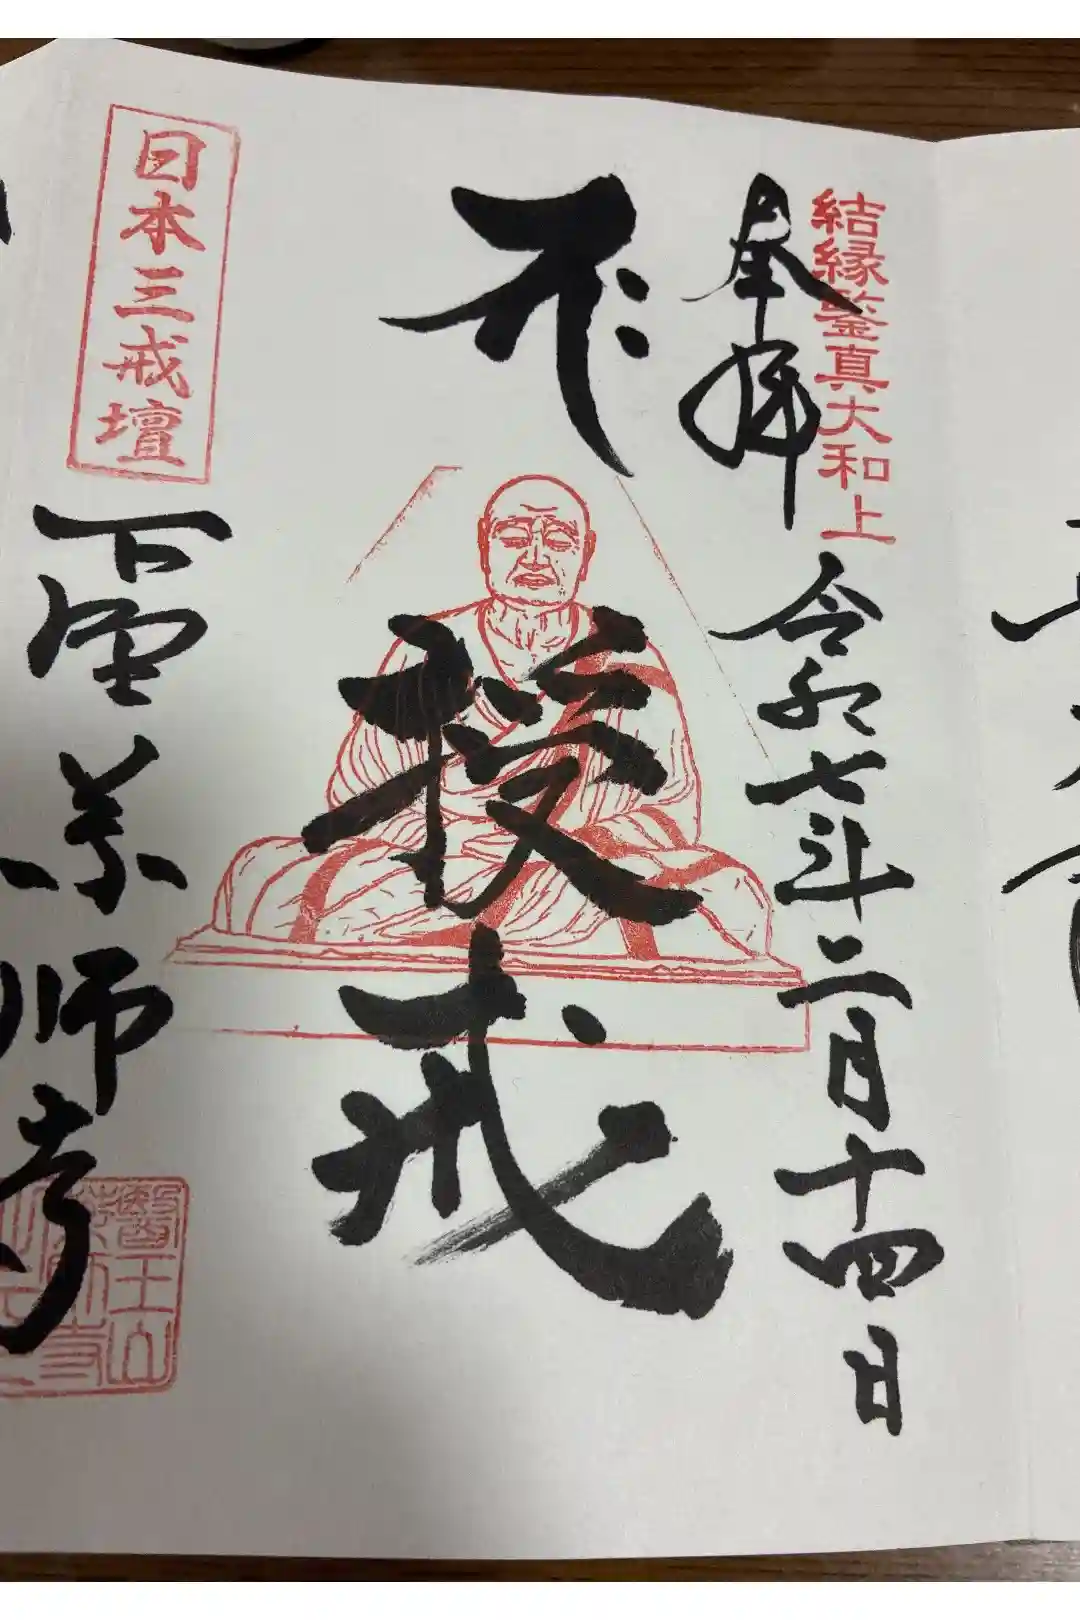 結縁鑒真大和上
奉拝
令和七年二月十四日
授戒
日本三戒壇
下野薬師寺
醫王山